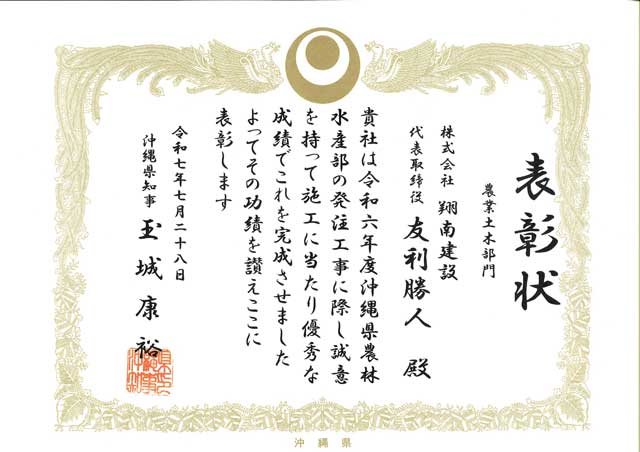 表彰状
農業土木部門
株式会社 翔南建設
代表取締役 友利勝人 殿
貴社は令和六年度沖縄県農林
水産部の発注工事に際し誠意
を持って施工に当たり優秀な
成績でこれを完成させました
よってその功績を讃えここに
表彰します
令和七年七月二十八日
沖縄県知事 玉城康裕
沖縄県